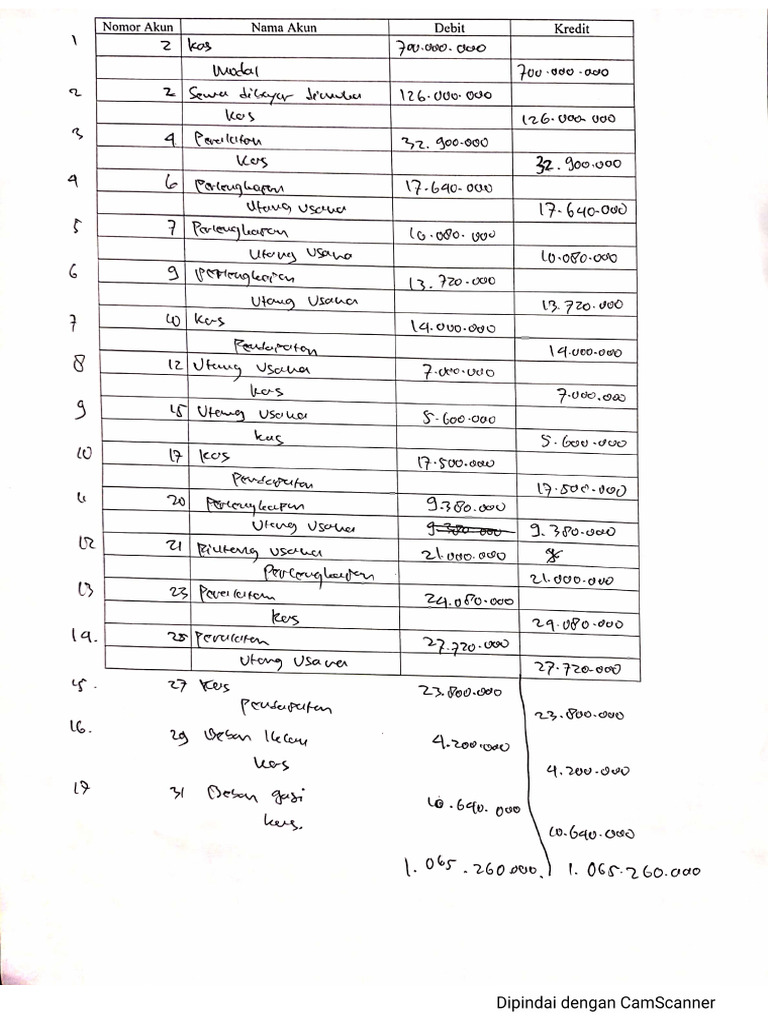 Nomor Akun Nama Akun Debit Kredit
1 2 Kas 700.000.000
Modal 700.000.000
2 2 Sewa dibayar dimuka 126.000.000
Kas 126.000.000
3 4 Peralatan 32.900.000
Kas 32.900.000
4 6 Perlengkapan 17.640.000
Utang Usaha 17.640.000
5 7 Perlengkapan 10.080.000
Utang Usaha 10.080.000
6 9 Perlengkapan 13.720.000
Utang Usaha 13.720.000
7 10 Kas 14.000.000
Pendapatan 14.000.000
8 12 Utang Usaha 7.000.000
Kas 7.000.000
9 15 Utang Usaha 5.600.000
Kas 5.600.000
10 17 Kas 17.500.000
Pendapatan 17.500.000
11 20 Perlengkapan 9.380.000
Utang Usaha 9.380.000 9.380.000
12 21 Piutang Usaha 21.000.000
Perlengkapan 21.000.000
13 23 Peralatan 24.080.000
Kas 24.080.000
14. 25 Peralatan 27.720.000
Utang Usaha 27.720.000
15. 27 Kas 23.800.000
Pendapatan 23.800.000
16. 29 Beban 4.200.000
Kas 4.200.000
17 31 Beban gaji 10.640.000
Kas. 10.640.000
1.065.260.000. 1.065.260.000
Dipindai dengan CamScanner